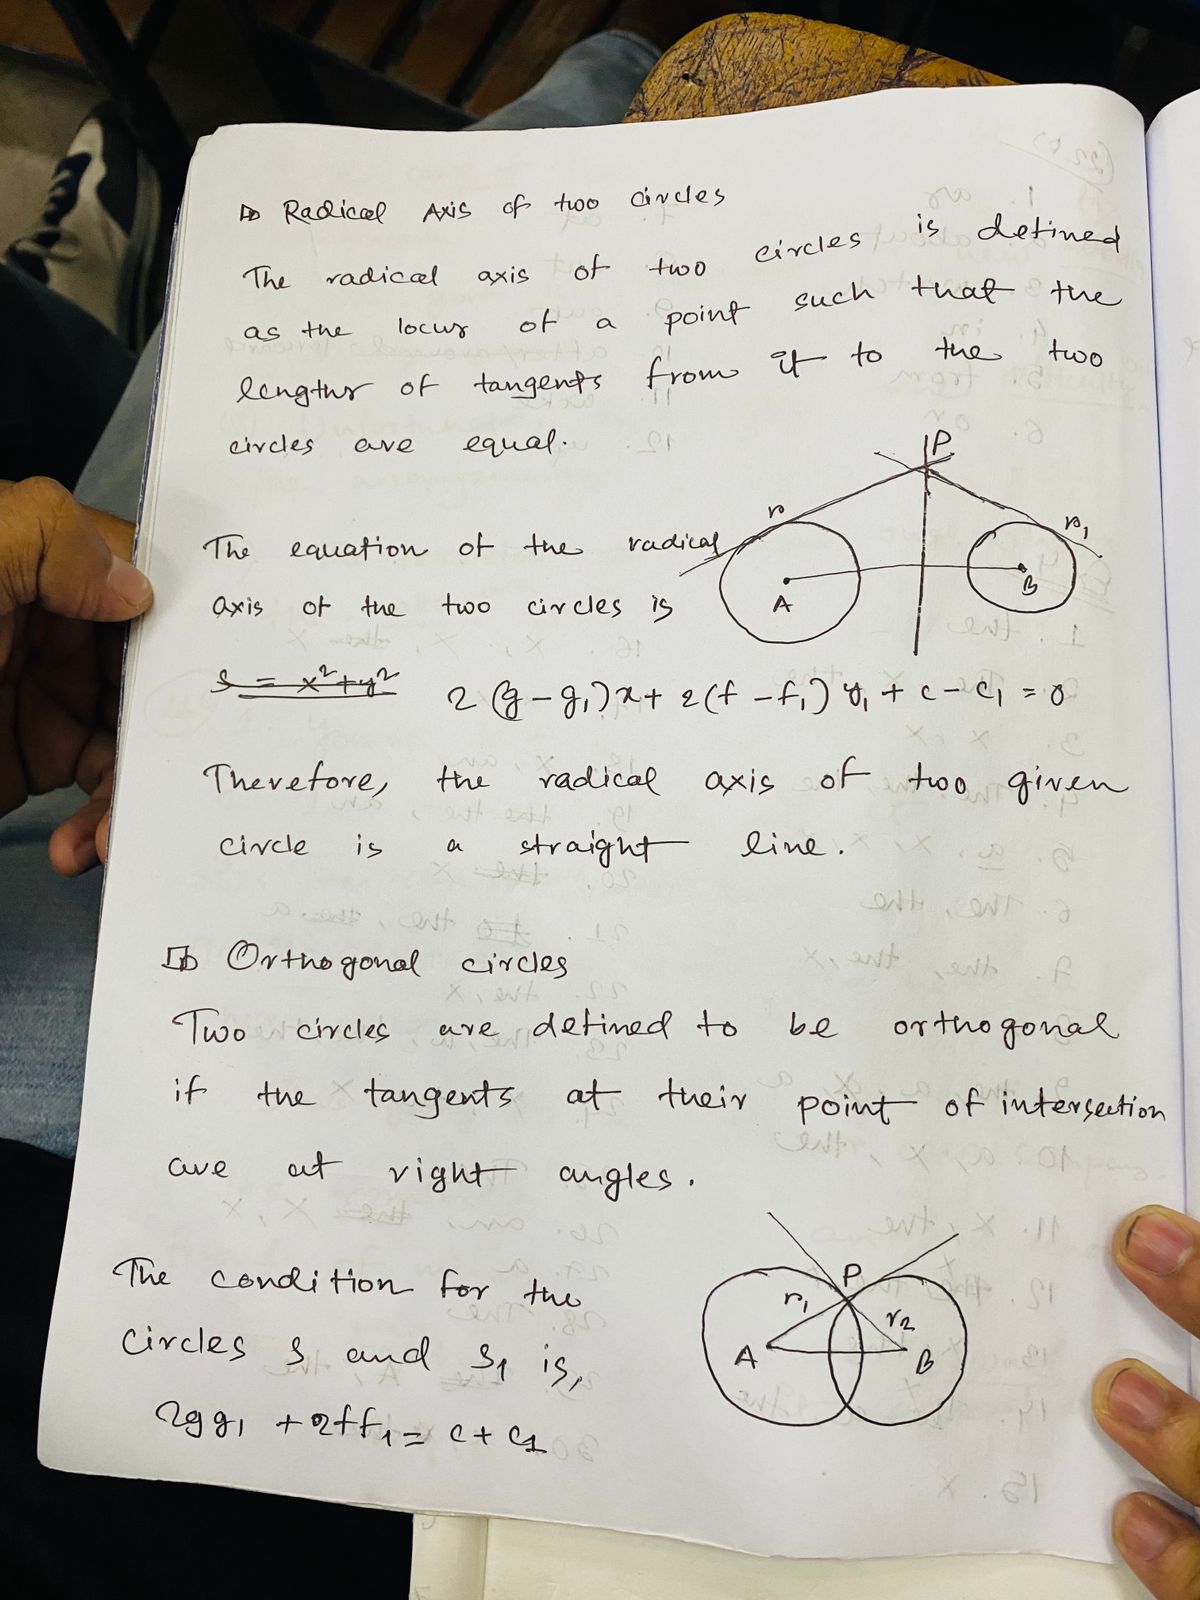 Radical Axis of two circles
The radical axis of two circles is defined
as the locus of a point such that the
lengths of tangents from it to the two
circles are equal.
P
r
r₁
A
B
The equation of the radical
axis of the two circles is
s = x²+y² 2(g-g₁)x + 2(f-f₁)y₁ + c-c₁ = 0
Therefore, the radical axis of two given
circle is a straight line.
Orthogonal circles
Two circles are defined to be orthogonal
if the tangents at their point of intersection
are at right angles.
P
r₁
r₂
A
B
The condition for the
circles s and s₁ is,
2gg₁ + 2ff₁ = c + c₁